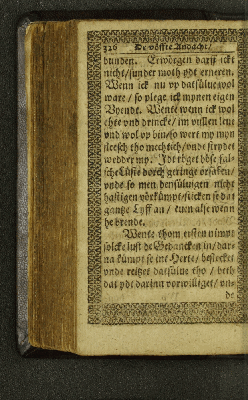 326 De vöffte Andacht/
bunden. Erwörgen darff ickt
nicht/ sunder moth ydt erneren.
Wenn ick nu vp datsülue wol
ware/ so plege ick mynen eigen
Vyendt. Wente wenn ick wol
ethe vnd drincke/ im vullen leue
vnd wol vp bin/ so wert my myn
fleesch tho mechtich/ vnde strydet
wedder my. Idt röget böse fal-
sche Lüste dorch geringe orsaken/
vnde so men densüluigen nicht
hastigen vörkümpt/ sticken se dat
gantze Lyff an/ euen alse wenn
he brende.
Wente thom ersten nimpt
solcke lust de Gedancken in/ dar-
na kümpt se int Herte/ beflecket
vnde reitzet datsülue tho / beth
dat ydt darinn vorwilliget/ vn-
de